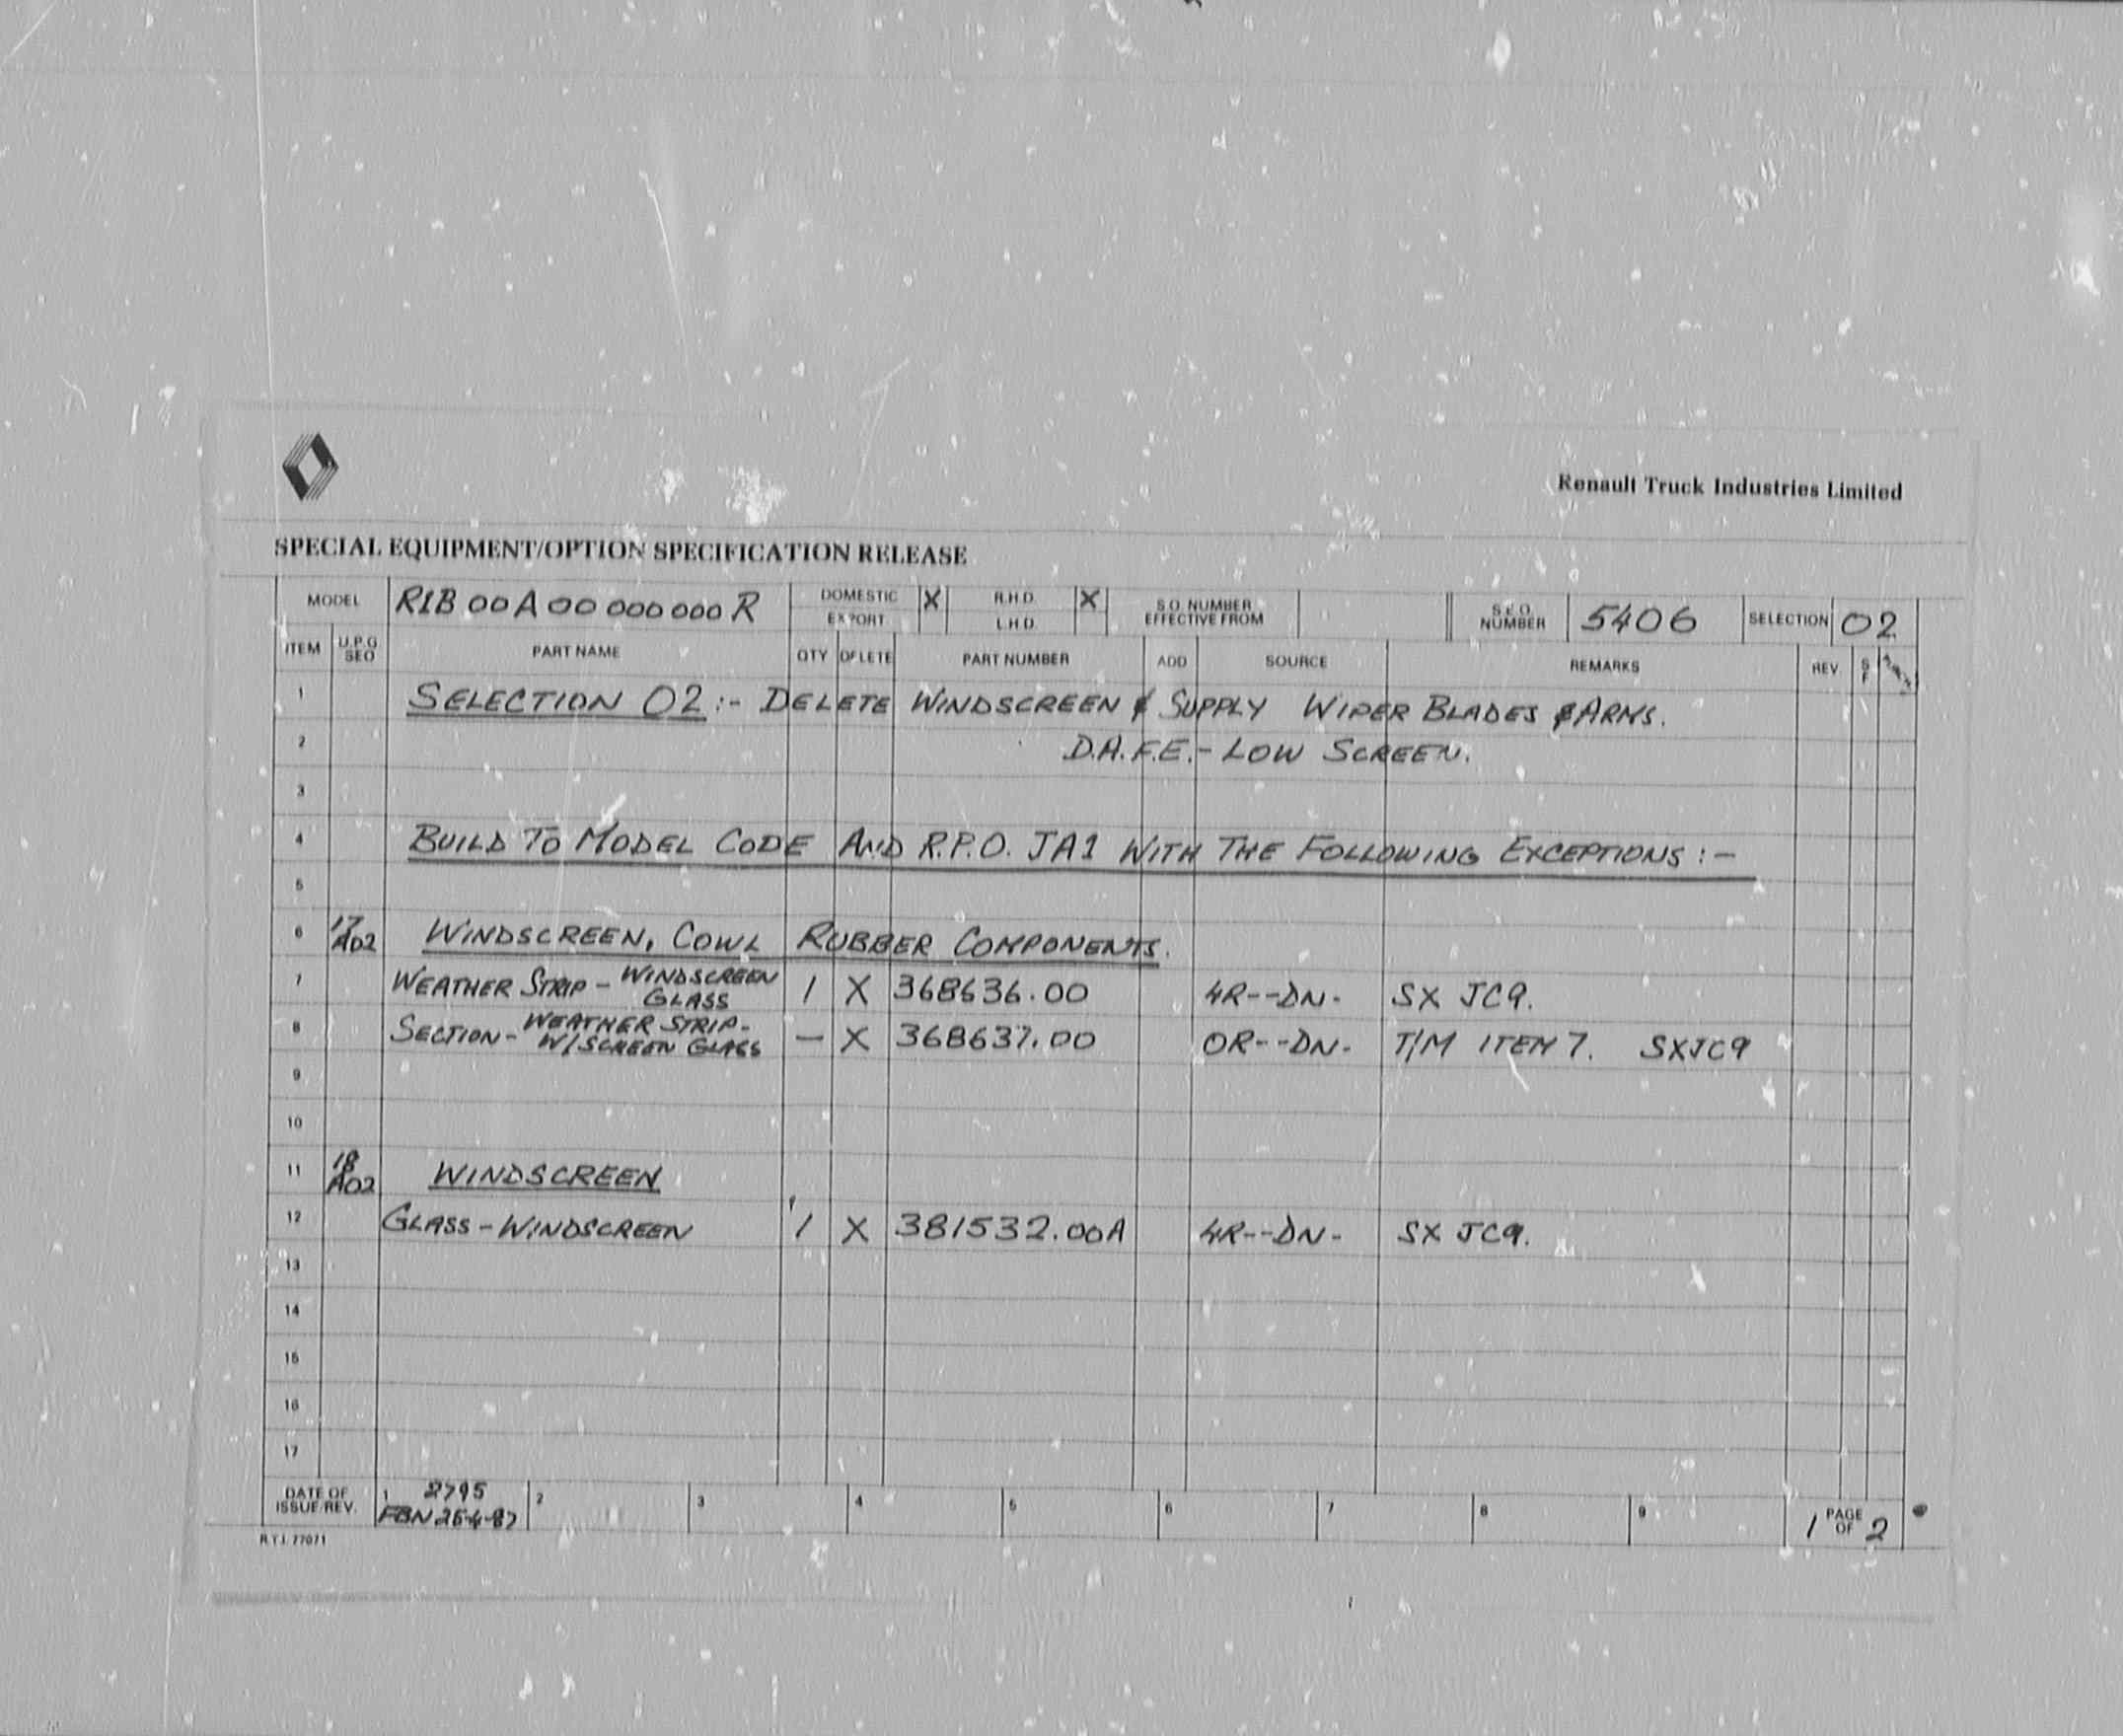 Renault Truck Industries Limited
SPECIAL EQUIPMENT/OPTION SPECIFICATION RELEASE
MODEL R1B 00 A 00 000 000 R DOMESTIC X R.H.D. X S.O. NUMBER EFFECTIVE FROM S.E.O. NUMBER 5406 SELECTION 02
EXPORT L.H.D.
ITEM U.P.G SEO PART NAME QTY DELETE PART NUMBER ADD SOURCE REMARKS REV S F
1 SELECTION 02:- DELETE WINDSCREEN & SUPPLY WIPER BLADES & ARMS.
2 D.A.F.E.- LOW SCREEN.
3
4 BUILD TO MODEL CODE AND R.P.O. JA1 WITH THE FOLLOWING EXCEPTIONS:-
5
6 17 A02 WINDSCREEN, COWL RUBBER COMPONENTS.
7 WEATHER STRIP - WINDSCREEN GLASS 1 X 368636.00 4R--DN- SX JC9.
8 SECTION - WEATHER STRIP - W/SCREEN GLASS — X 368637.00 OR--DN- T/M ITEM 7. SXJC9
9
10
11 18 A02 WINDSCREEN
12 GLASS - WINDSCREEN 1 X 381532.00A 4R--DN- SX JC9.
13
14
15
16
17
DATE OF ISSUE/REV. 1 2795 2 3 4 5 6 7 8 9 1 PAGE OF 2
R.T.I. 77071